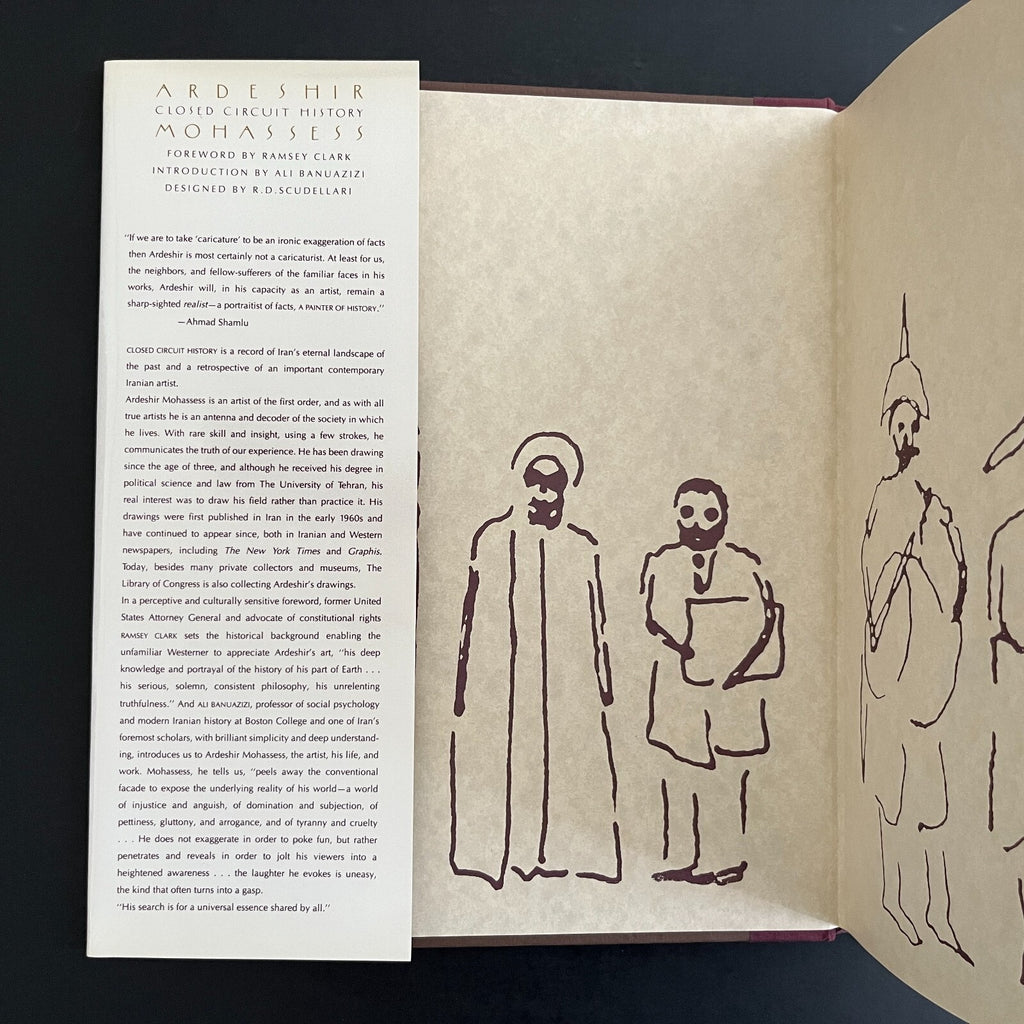 ARDESHIR
CLOSED CIRCUIT HISTORY
MOHASSESS
FOREWORD BY RAMSEY CLARK
INTRODUCTION BY ALI BANUAZIZI
DESIGNED BY R.D.SCUDELLARI
"If we are to take 'caricature' to be an ironic exaggeration of facts
then Ardeshir is most certainly not a caricaturist. At least for us,
the neighbors, and fellow-sufferers of the familiar faces in his
works, Ardeshir will, in his capacity as an artist, remain a
sharp-sighted realist—a portraitist of facts, A PAINTER OF HISTORY."
—Ahmad Shamlu
CLOSED CIRCUIT HISTORY is a record of Iran's eternal landscape of
the past and a retrospective of an important contemporary
Iranian artist.
Ardeshir Mohassess is an artist of the first order, and as with all
true artists he is an antenna and decoder of the society in which
he lives. With rare skill and insight, using a few strokes, he
communicates the truth of our experience. He has been drawing
since the age of three, and although he received his degree in
political science and law from The University of Tehran, his
real interest was to draw his field rather than practice it. His
drawings were first published in Iran in the early 1960s and
have continued to appear since, both in Iranian and Western
newspapers, including The New York Times and Graphis.
Today, besides many private collectors and museums, The
Library of Congress is also collecting Ardeshir's drawings.
In a perceptive and culturally sensitive foreword, former United
States Attorney General and advocate of constitutional rights
RAMSEY CLARK sets the historical background enabling the
unfamiliar Westerner to appreciate Ardeshir's art, "his deep
knowledge and portrayal of the history of his part of Earth . . .
his serious, solemn, consistent philosophy, his unrelenting
truthfulness." And ALI BANUAZIZI, professor of social psychology
and modern Iranian history at Boston College and one of Iran's
foremost scholars, with brilliant simplicity and deep understand-
ing, introduces us to Ardeshir Mohassess, the artist, his life, and
work. Mohassess, he tells us, "peels away the conventional
facade to expose the underlying reality of his world—a world
of injustice and anguish, of domination and subjection, of
pettiness, gluttony, and arrogance, and of tyranny and cruelty
. . . He does not exaggerate in order to poke fun, but rather
penetrates and reveals in order to jolt his viewers into a
heightened awareness . . . the laughter he evokes is uneasy,
the kind that often turns into a gasp.
"His search is for a universal essence shared by all."